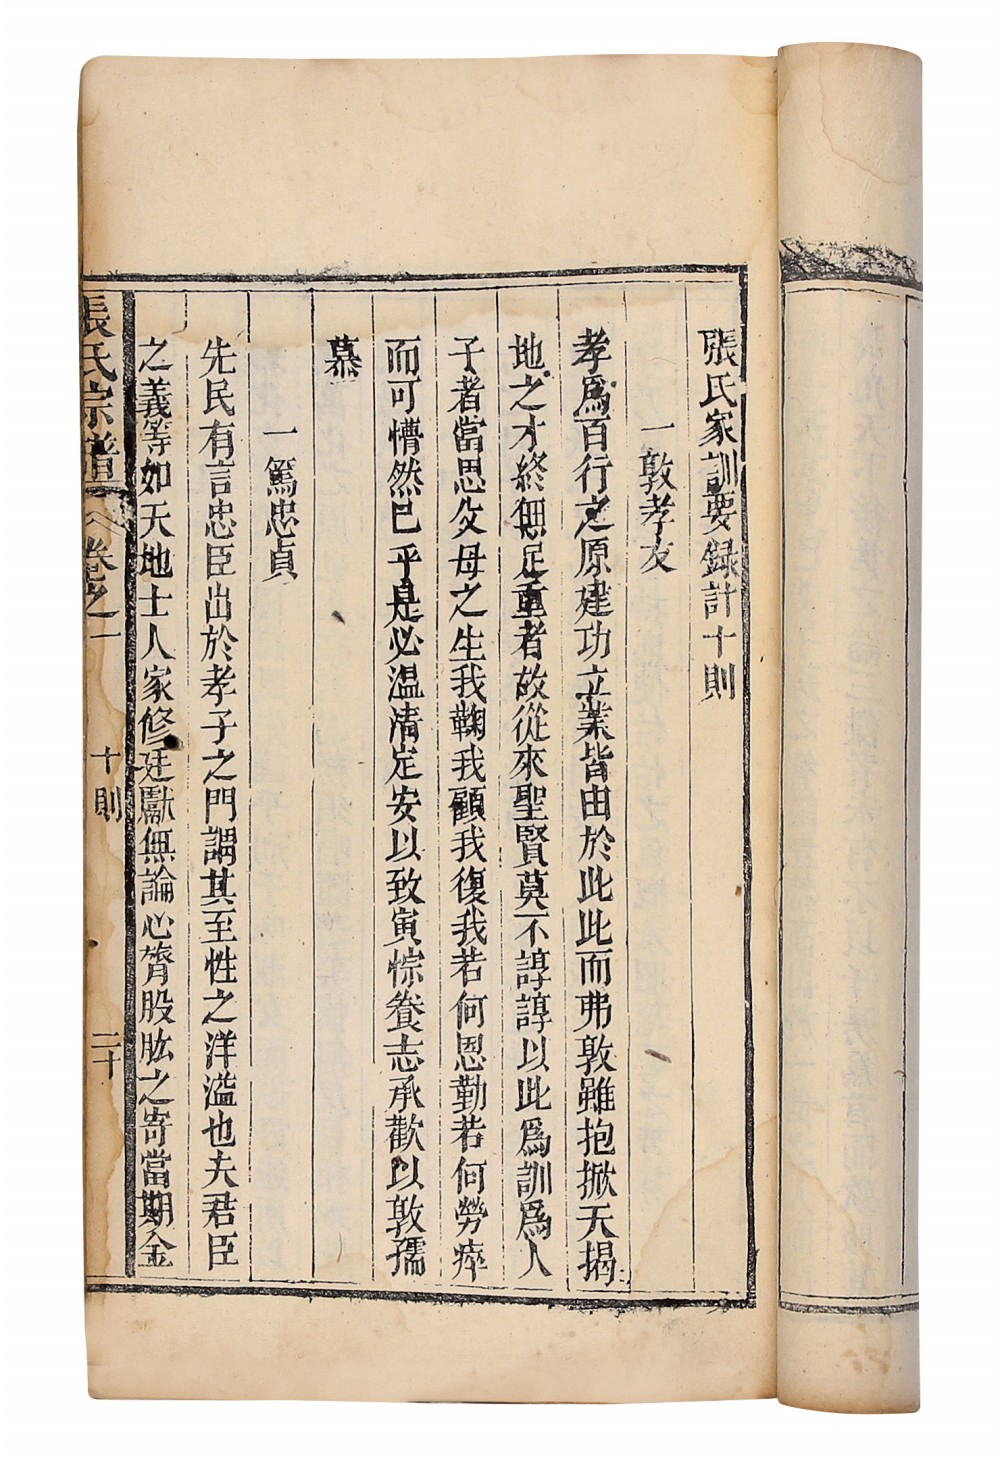 張氏家訓要録計十則
一敦孝友
孝爲百行之原建功立業皆由於此此而弗敦雖抱掀天揭
地之才終無足重者故從來聖賢莫不諄諄以此爲訓爲人
子者當思父母之生我鞠我顧我復我若何恩勤若何勞瘁
而可懵然已乎是必溫清定安以致寅悰養志承歡以敦孺
慕
一篤忠貞
先民有言忠臣出於孝子之門謂其至性之洋溢也夫君臣
之義等如天地士人家修廷獻無論心膂股肱之寄當期金
張氏宗譜 卷之一 十則 二十